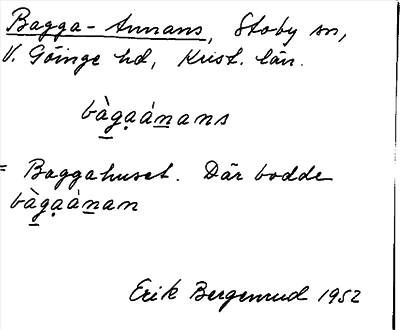 Bagga-Annans, Stoby sn,
V. Göinge hd, Krist. län.
bàg̣aánans
= Baggahuset. Där bodde
bàg̣aànan
Erik Bergenrud 1952